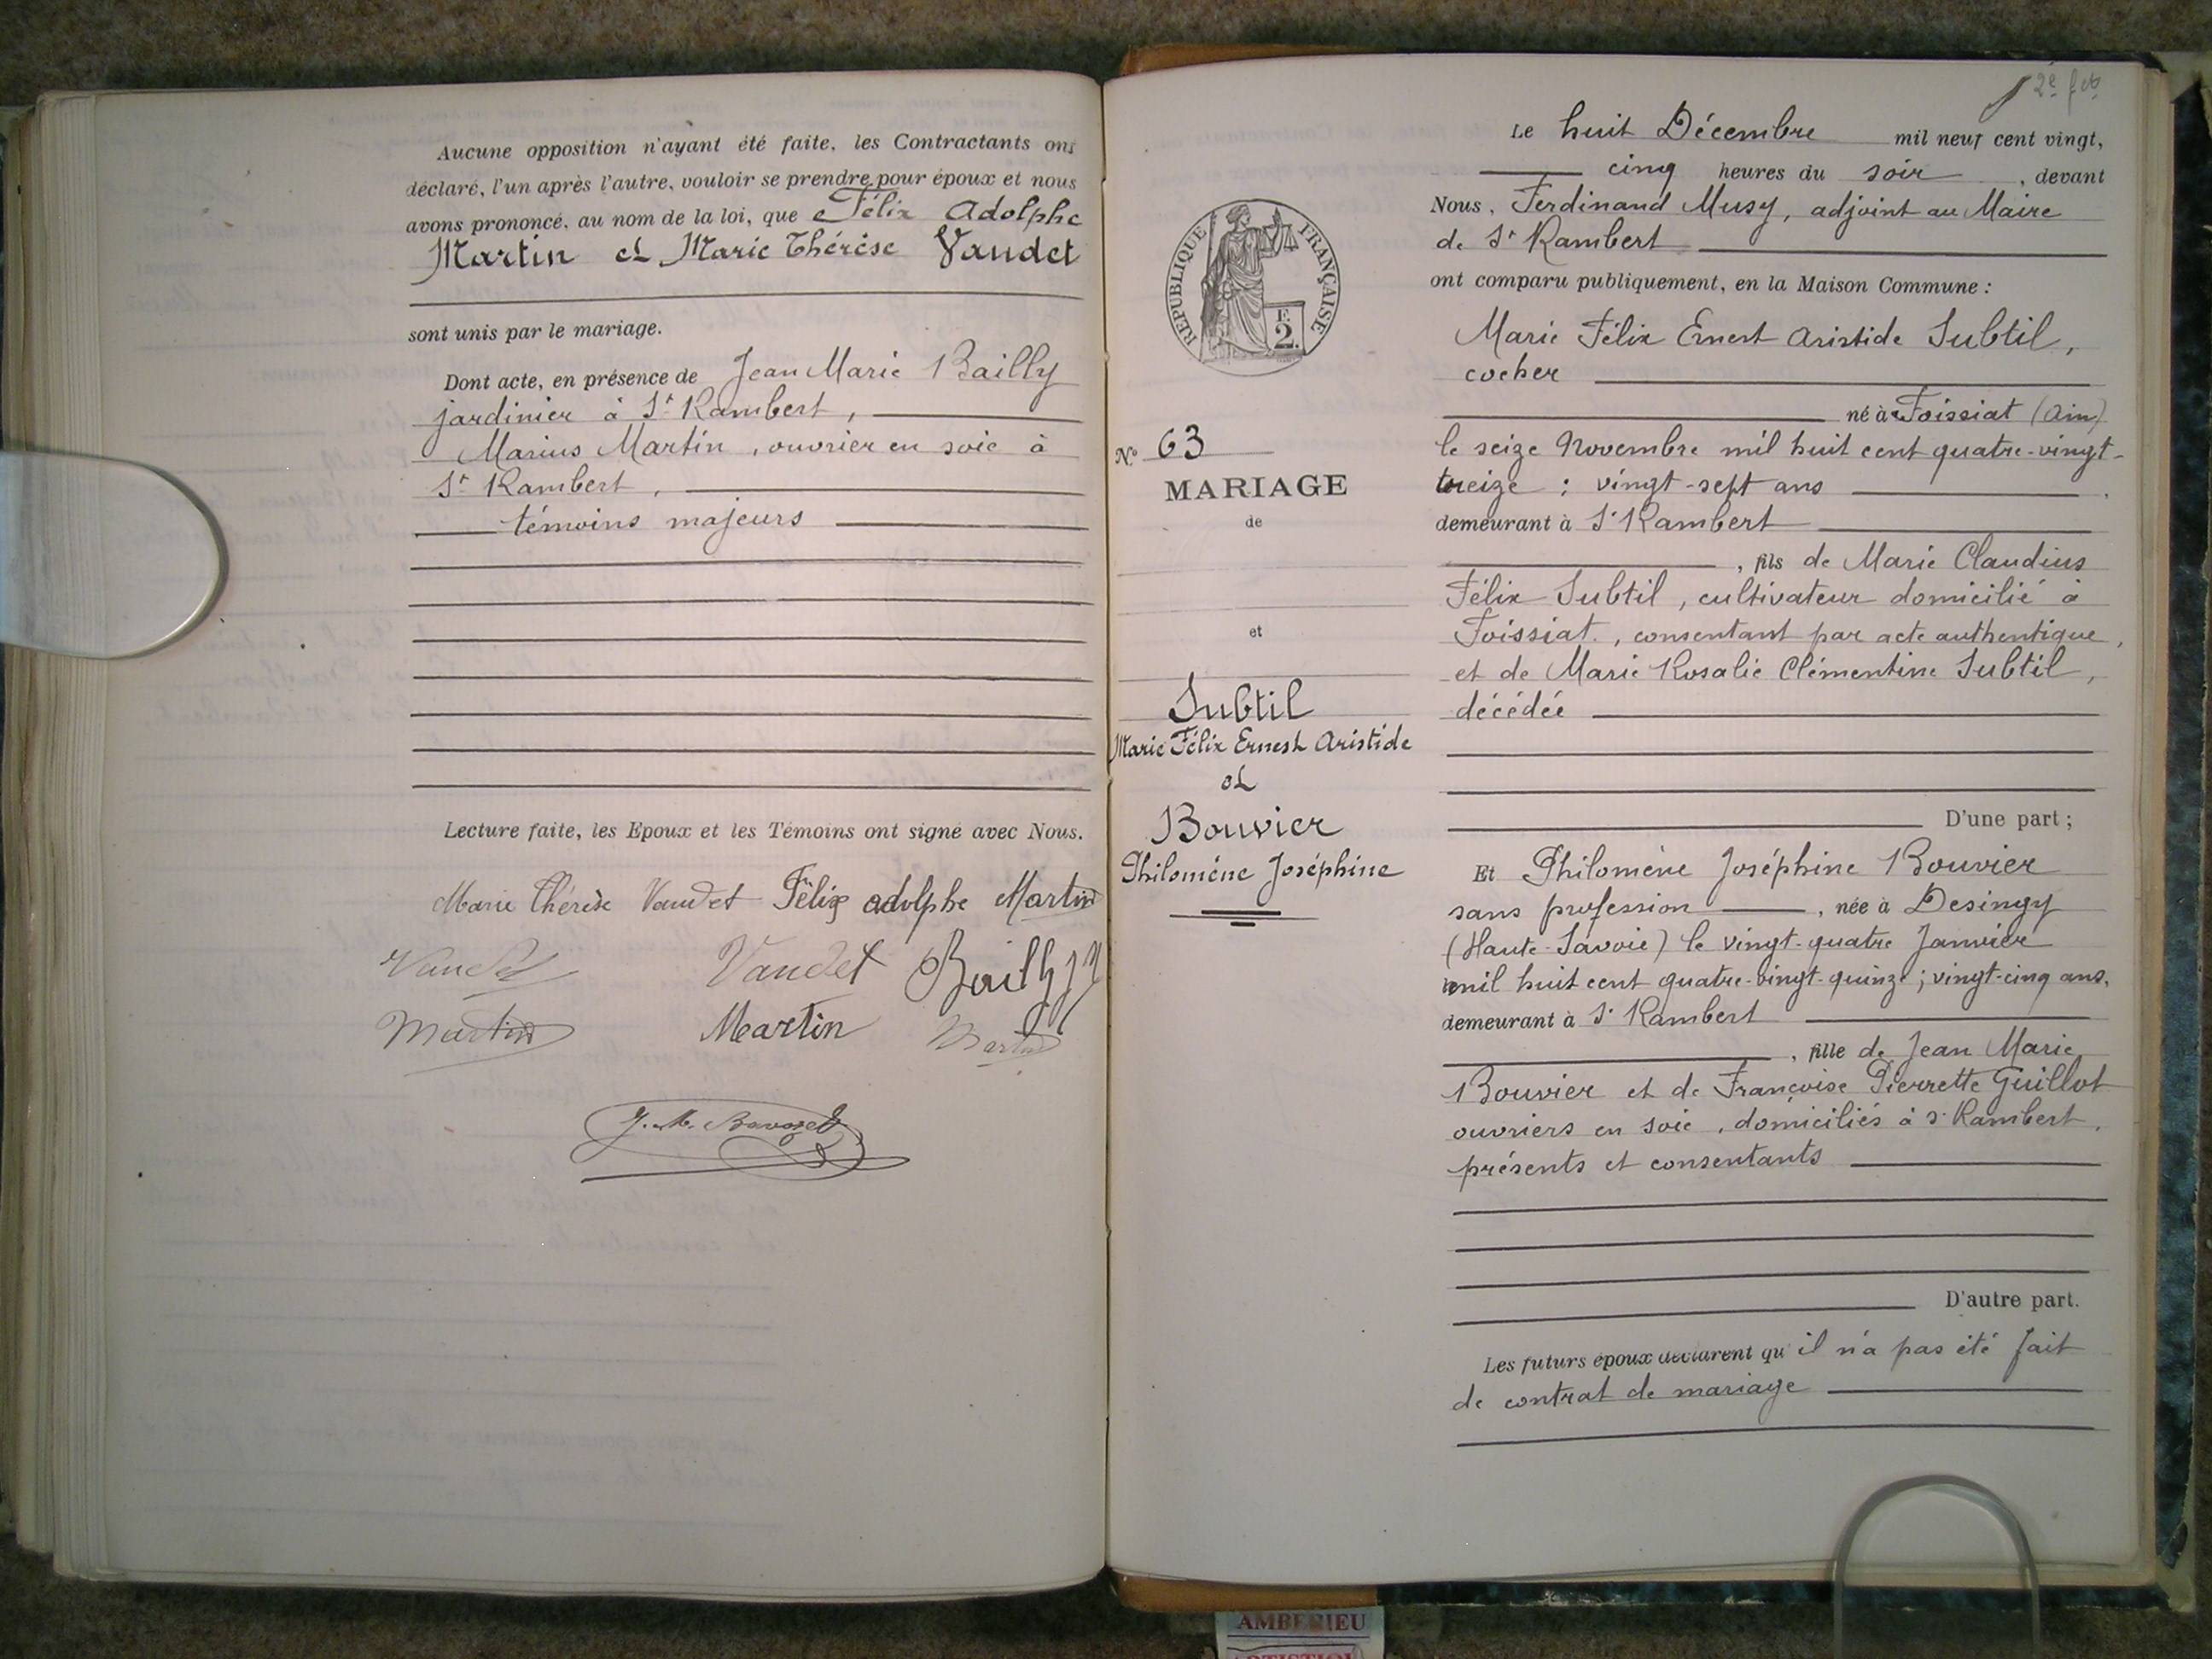 Aucune opposition n'ayant été faite, les Contractants ont
déclaré, l'un après l'autre, vouloir se prendre pour époux et nous
avons prononcé, au nom de la loi, que Félix Adolphe
Martin et Marie Thérèse Vaudet
sont unis par le mariage.
Dont acte, en présence de Jean Marie Bailly
jardinier à St Rambert,
Marius Martin, ouvrier en soie à
St Rambert,
témoins majeurs
Lecture faite, les Epoux et les Témoins ont signé avec Nous.
Marie Thérèse Vaudet Félix adolphe Martin
Vaudet Vaudet Bailly
Martin Martin Martin
J. M. Bavozet
2e
Le huit Décembre mil neuf cent vingt,
cinq heures du soir, devant
Nous, Ferdinand Musy, adjoint au Maire
de St Rambert
ont comparu publiquement, en la Maison Commune :
Marie Félix Ernest Aristide Subtil,
cocher
né à Foissiat (Ain)
le seize Novembre mil huit cent quatre-vingt-
treize : vingt-sept ans
demeurant à St Rambert
, fils de Marie Claudius
Félix Subtil, cultivateur domicilié à
Foissiat, consentant par acte authentique,
et de Marie Rosalie Clémentine Subtil,
décédée
D'une part ;
Et Philomène Joséphine Bouvier
sans profession, née à Desingy
(Haute-Savoie) le vingt-quatre Janvier
mil huit cent quatre-vingt-quinze ; vingt-cinq ans,
demeurant à St Rambert
, fille de Jean Marie
Bouvier et de Françoise Pierrette Guillot
ouvriers en soie, domiciliés à St Rambert,
présents et consentants
D'autre part.
Les futurs époux déclarent qu'il n'a pas été fait
de contrat de mariage
RÉPUBLIQUE FRANÇAISE
F.
2.
No 63
MARIAGE
de
et
Subtil
Marie Félix Ernest Aristide
et
Bouvier
Philomène Joséphine
AMBERIEU